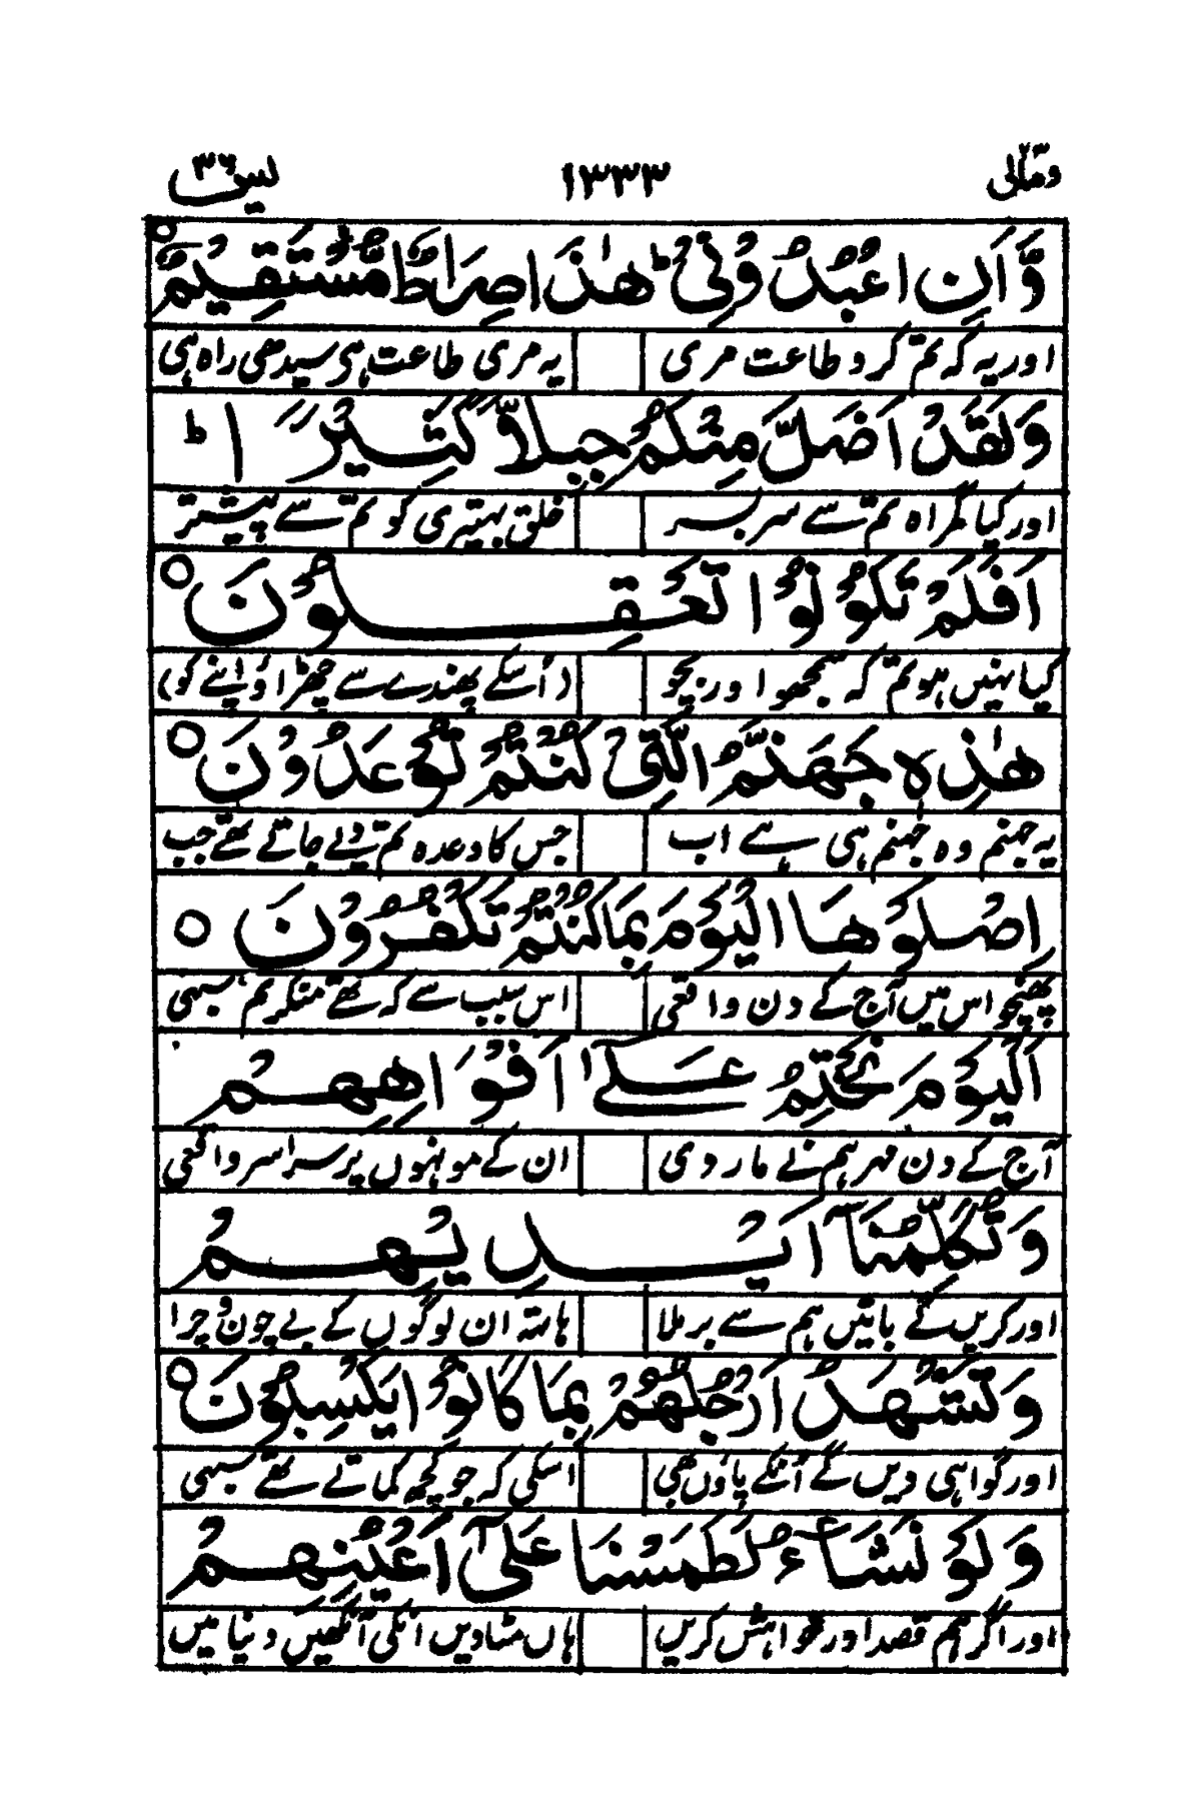 ومالی ۲۳ ۱۳۳۳ یٰسٓ ۳۶
وَّاَنِ اعْبُدُوْنِیْ ؕ هٰذَا صِرَاطٌ مُّسْتَقِیْمٌ ○
اور یہ کہ تم کرو طاعت مری یہ مری طاعت ہی سیدھی راہ ہی
وَلَقَدْ اَضَلَّ مِنْكُمْ جِبِلًّا كَثِیْرًا ؕ
اور کیا گمراہ تم سے سر بسر خلق بہتیری کو تم سے پیشتر
اَفَلَمْ تَكُوْنُوْا تَعْقِلُوْنَ ○
کیا نہیں ہو تم کہ سمجھو اور بچو (اُسکے پھندے سے چھڑاؤ اپنے کو)
هٰذِهٖ جَهَنَّمُ الَّتِیْ كُنْتُمْ تُوْعَدُوْنَ ○
یہ جہنم وہ جہنم ہی ہے اب جس کا وعدہ تم دیے جاتے تھے جب
اِصْلَوْهَا الْیَوْمَ بِمَا كُنْتُمْ تَكْفُرُوْنَ ○
پہنچو اس میں آج کے دن واقعی اس سبب سے کہ تھے منکر تم سبھی
اَلْیَوْمَ نَخْتِمُ عَلٰۤی اَفْوَاهِهِمْ
آج کے دن مہر ہم نے مار دی ان کے مونہوں پر سراسر واقعی
وَتُكَلِّمُنَاۤ اَیْدِیْهِمْ
اور کریں گے باتیں ہم سے برملا ہاتھ ان لوگوں کے بے چون و چرا
وَتَشْهَدُ اَرْجُلُهُمْ بِمَا كَانُوْا یَكْسِبُوْنَ ○
اور گواہی دیں گے اُنکے پاؤں بھی اسکی کہ جو کچھ کماتے تھے سبھی
وَلَوْ نَشَآءُ لَطَمَسْنَا عَلٰۤی اَعْیُنِهِمْ
اور اگر ہم قصد اور خواہش کریں ہاں مٹا دیں انکی آنکھیں دنیا میں